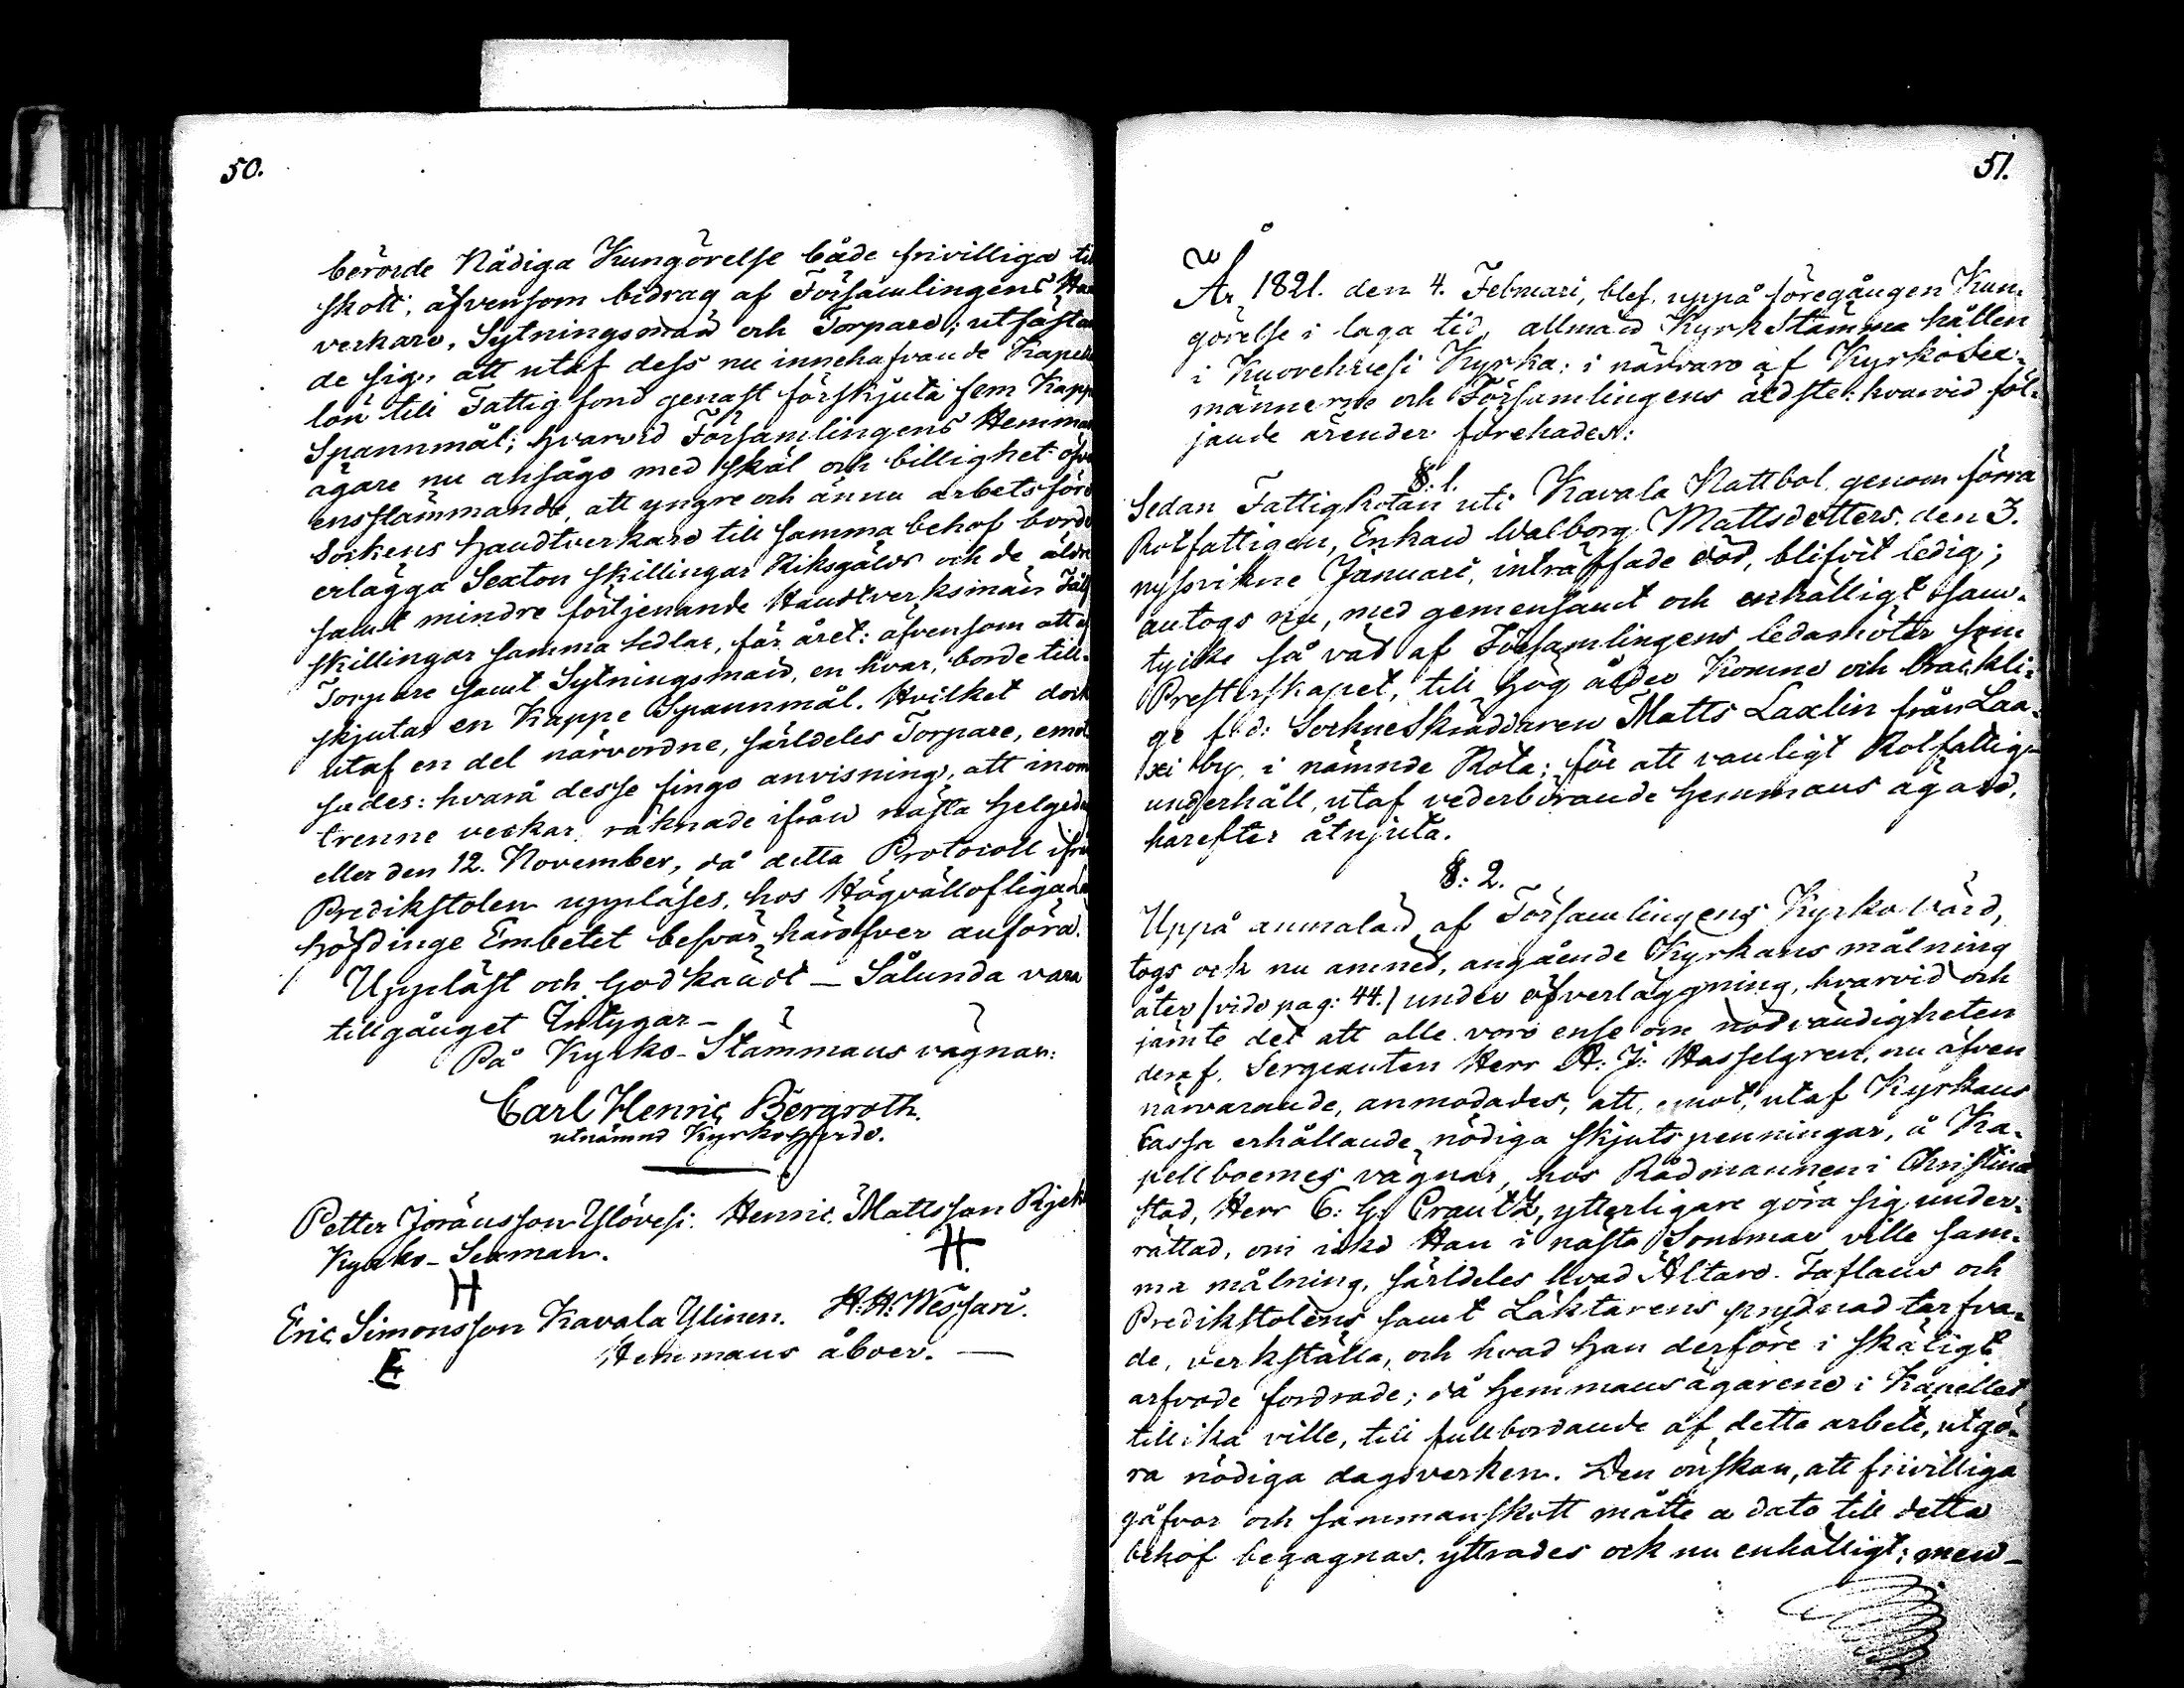 50.
berörde Nådiga Kungörelse både frivilliga till
skott, äfvensom bidrag af Församlingens Han
verkare, Sytningsmän och Torpare; utfäste
de sig, att utaf dess nu innehafvande Kapel
lön till Fattig fond genast förskjuta fem Kapp
Spannmål; hvarvid Församlingens Hemmans
ägare nu ansågo med skäl och billighet öfver
ensstämmande, att yngre och ännu arbetsföre
Sockens Handtverkare till samma behof borde
erlägga Sexton skillingar Riksgälds och de äldre
samt mindre förtjenande Handtverksmän Tolf
skillingar samma sedlar, för året: äfvensom att
Torpare samt Sytningsmän, en hvar, borde till-
skjuta en Kappe Spannmål. Hvilket dock
utaf en del närvordne, särldeles Torpare, emot
sades: hvarå desse fingo anvisning, att inom
trenne veckar räknade ifrån nästa helgeda
eller den 12. November, då detta Protocoll ifrå
Predikstolen uppläses, hos Högvällofliga La
höfdinge Embetet besvär häröfver anföra.
Uppläst och Godkändt – Sålunda vara
tillgånget Intygar –
På Kyrko-Stämmans vägnar:
Carl Henric Bergroth.
utnämnd Kyrkoherde.
Petter Jöransson Ylövesi. Henric Mattsson
Kyrko-Sexman. H
H
Eric Simonsson Kavala Ylinen. H: H: Wessari.
E Hemmans åboer. –
51.
År 1821. den 4. Februari, blef uppå föregången Kun-
görelse i laga tid, allmän KyrkStämma hållen
i Kuorehvesi Kyrka: i närvaro af KyrkoSex-
männerne och Församlingens äldste: hvarvid föl-
jande ärender förehades:
§. 1.
Sedan FattigRotan uti Kavala Nattbol genom förra
Rotfattigen, Enkan Walborg Mattsdotters, den 3.
nyssvikne Januari, inträffade död, blifvit ledig;
antogs nu, med gemensamt och enhälligt sam-
tycke så väl af Församlingens ledamöter som
Presterskapet, till hög ålder Komne och bräckli-
ge f. d: SockneSkräddaren Matts Laxlin från Laa-
xi by, i nämnde Rota; för att vanligt Rotfattige
underhåll, utaf vederbörande hemmans ägare,
härefter åtnjuta.
§: 2.
Uppå anmälan af Församlingens Kyrkovärd,
togs och nu ämned, angående Kyrkans målning
åter /vide pag: 44./ under öfverläggning, hvarvid och
jämte det att alle voro ense om nödvändigheten
deraf, Sergeanten Herr A: J: Hasselgren, nu äfven
närvarande, anmodades, att, emot, utaf Kyrkans
Cassa erhållande, nödiga skjutspenningar, å Ka-
pellboernes vägnar, hos Rådmannen i Christinæ
stad, Herr C: G: Crautz, ytterligare göra sig under-
rättad, om icke Han i nästa Sommar ville sam-
ma målning, särldeles hvad Altare-Taflans och
Predikstolens samt Läktarens prydnad tarfva-
de, verkställa, och hvad han derföre i skäligt
arfvode fordrade; då hemmansägarene i Kapellet
tillika ville, till fullbordande af detta arbete, utgö-
ra nödiga dagsverken. Den önskan, att frivilliga
gåfvor och sammanskott måtte a dato till detta
behof begagnas, yttrades ock nu enhälligt; men –